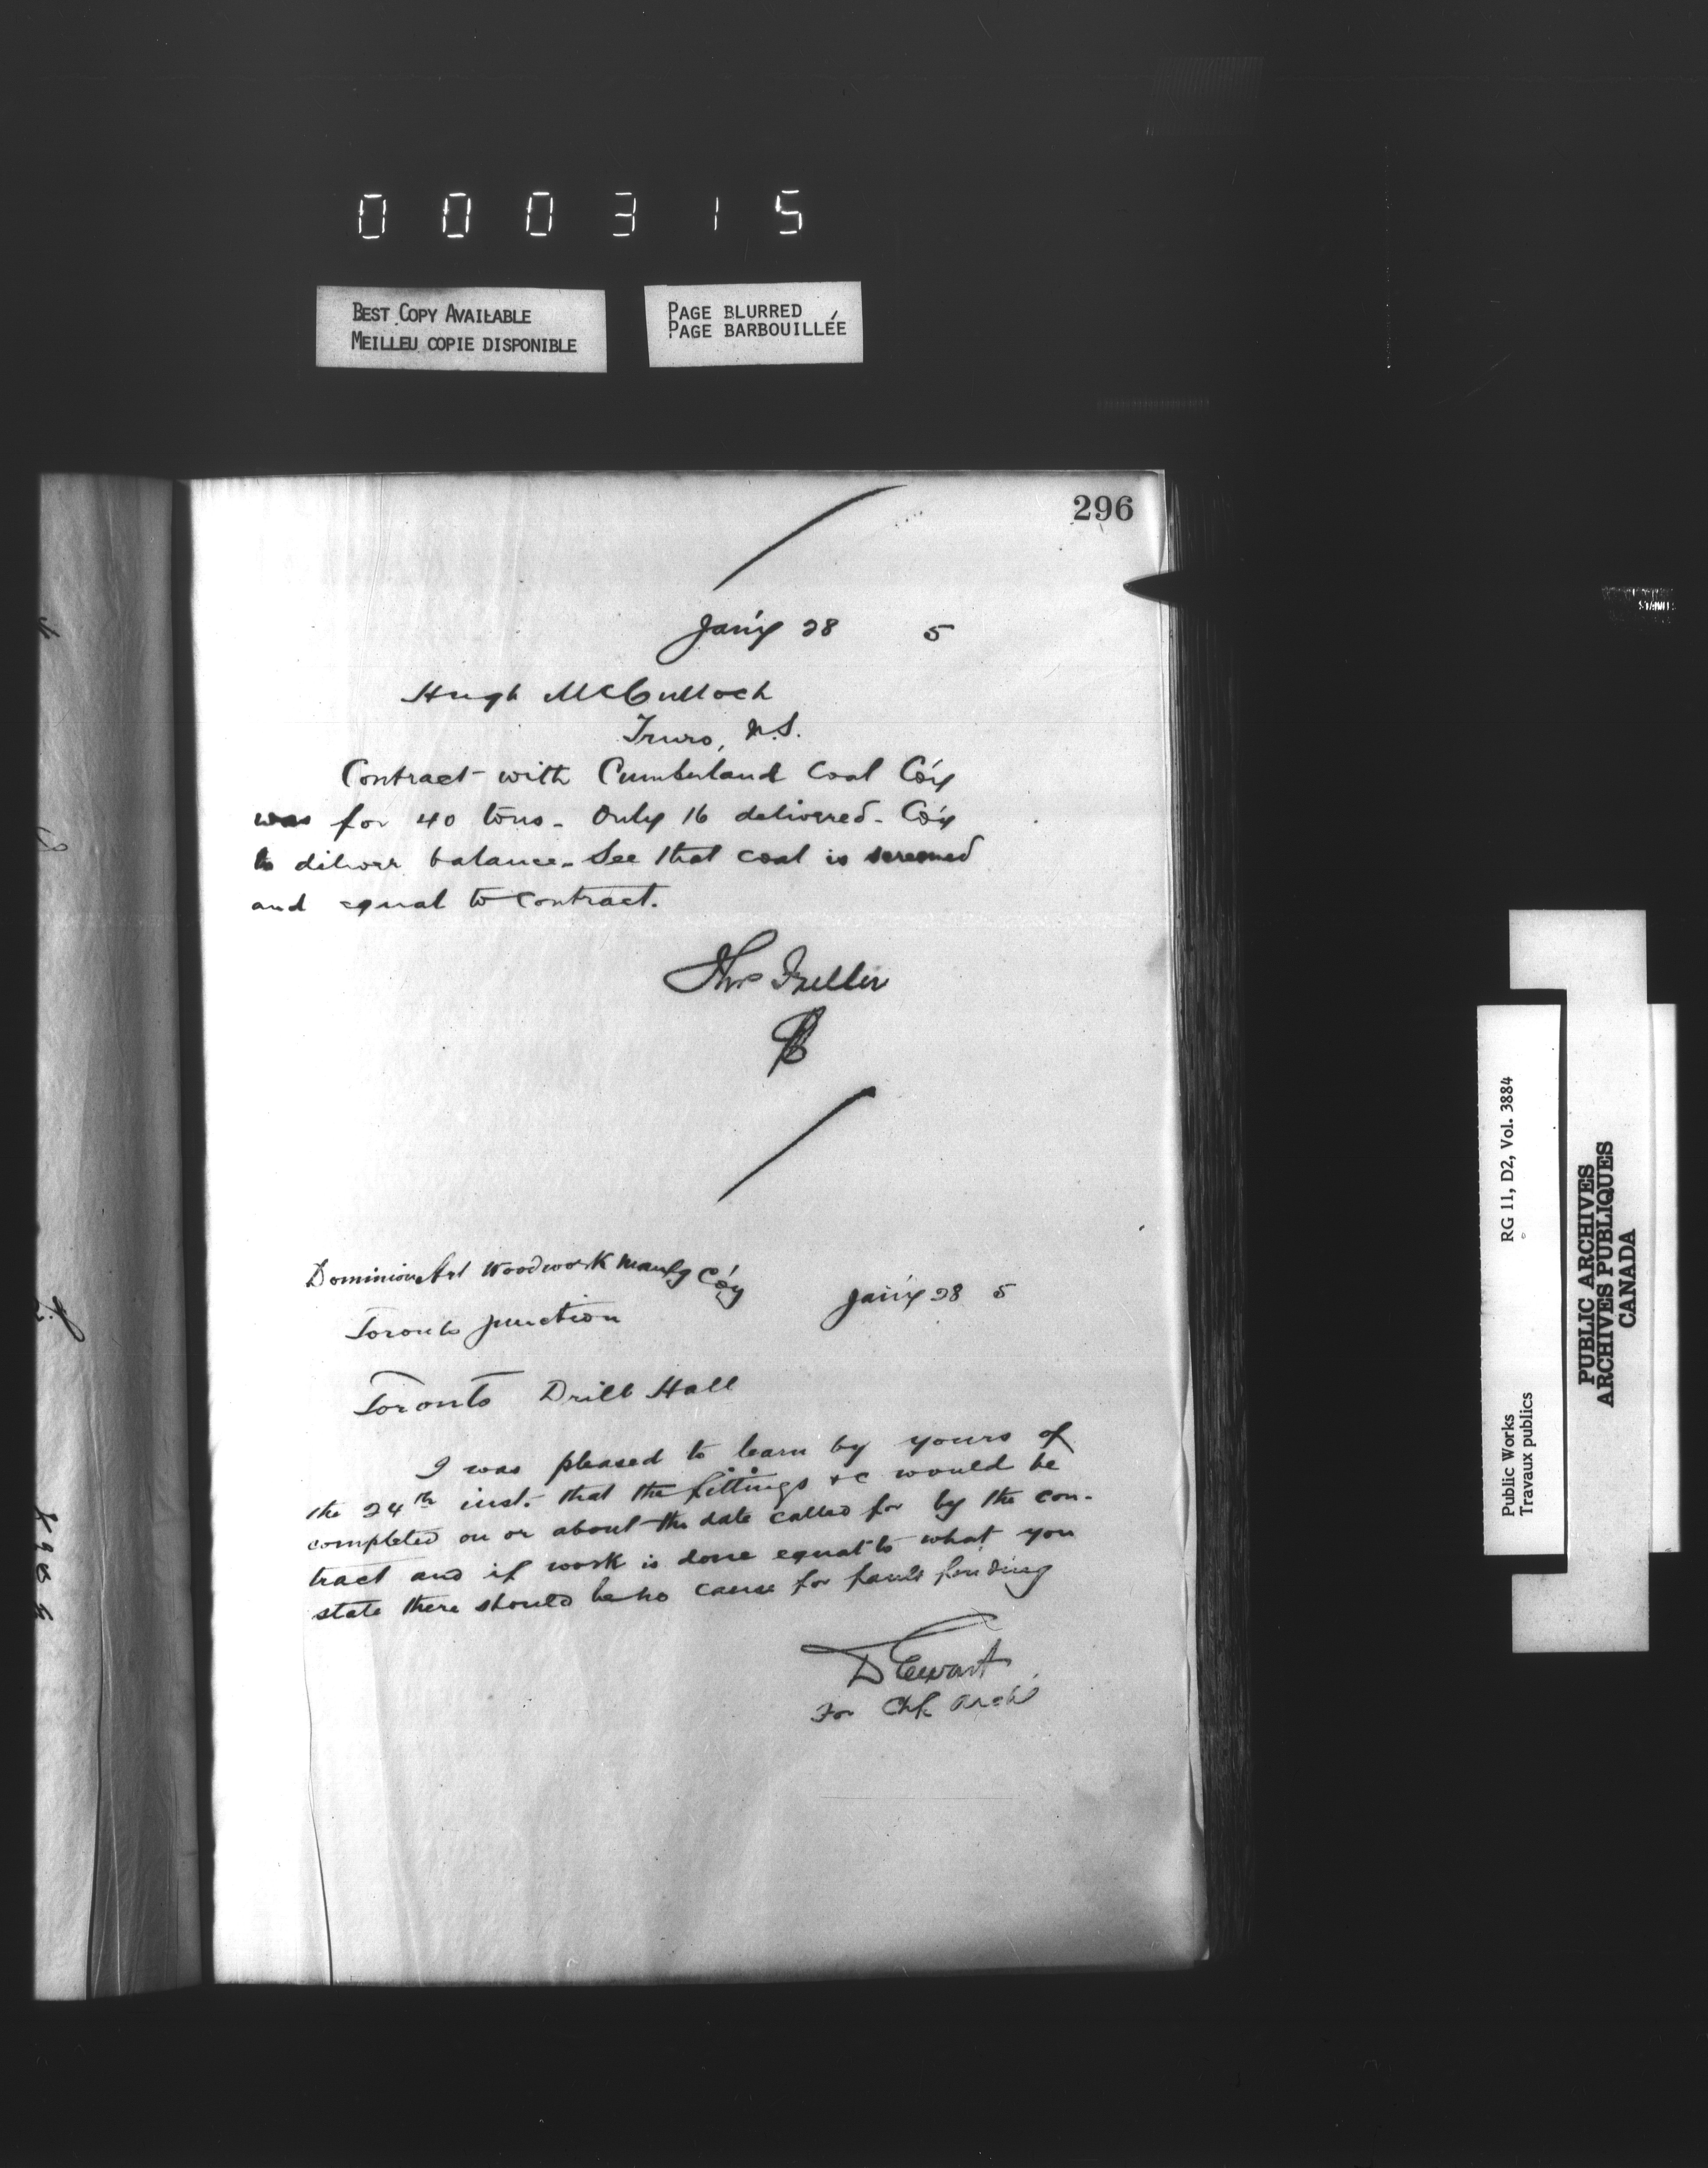 000315
BEST COPY AVAILABLE
MEILLEU COPIE DISPONIBLE
PAGE BLURRED
PAGE BARBOUILLÉE
296
Jan'y 28 5
Hugh McCulloch
Truro, N.S.
Contract with Cumberland Coal Co'y
was for 40 tons - Only 16 delivered - Co'y
to deliver balance - See that coal is screened
and equal to contract.
Thos Fuller
Dominion Art Woodwork Manfg Co'y
Jan'y 28 5
Toronto Junction
Toronto Drill Hall
I was pleased to learn by yours of
the 24th inst. that the fittings &c would be
completed on or about the date called for by the con-
tract and if work is done equal to what you
state there should be no cause for fault finding
D Ewart
For Chf Arch'
RG 11, D2, Vol. 3884
Public Works
Travaux publics
PUBLIC ARCHIVES
ARCHIVES PUBLIQUES
CANADA